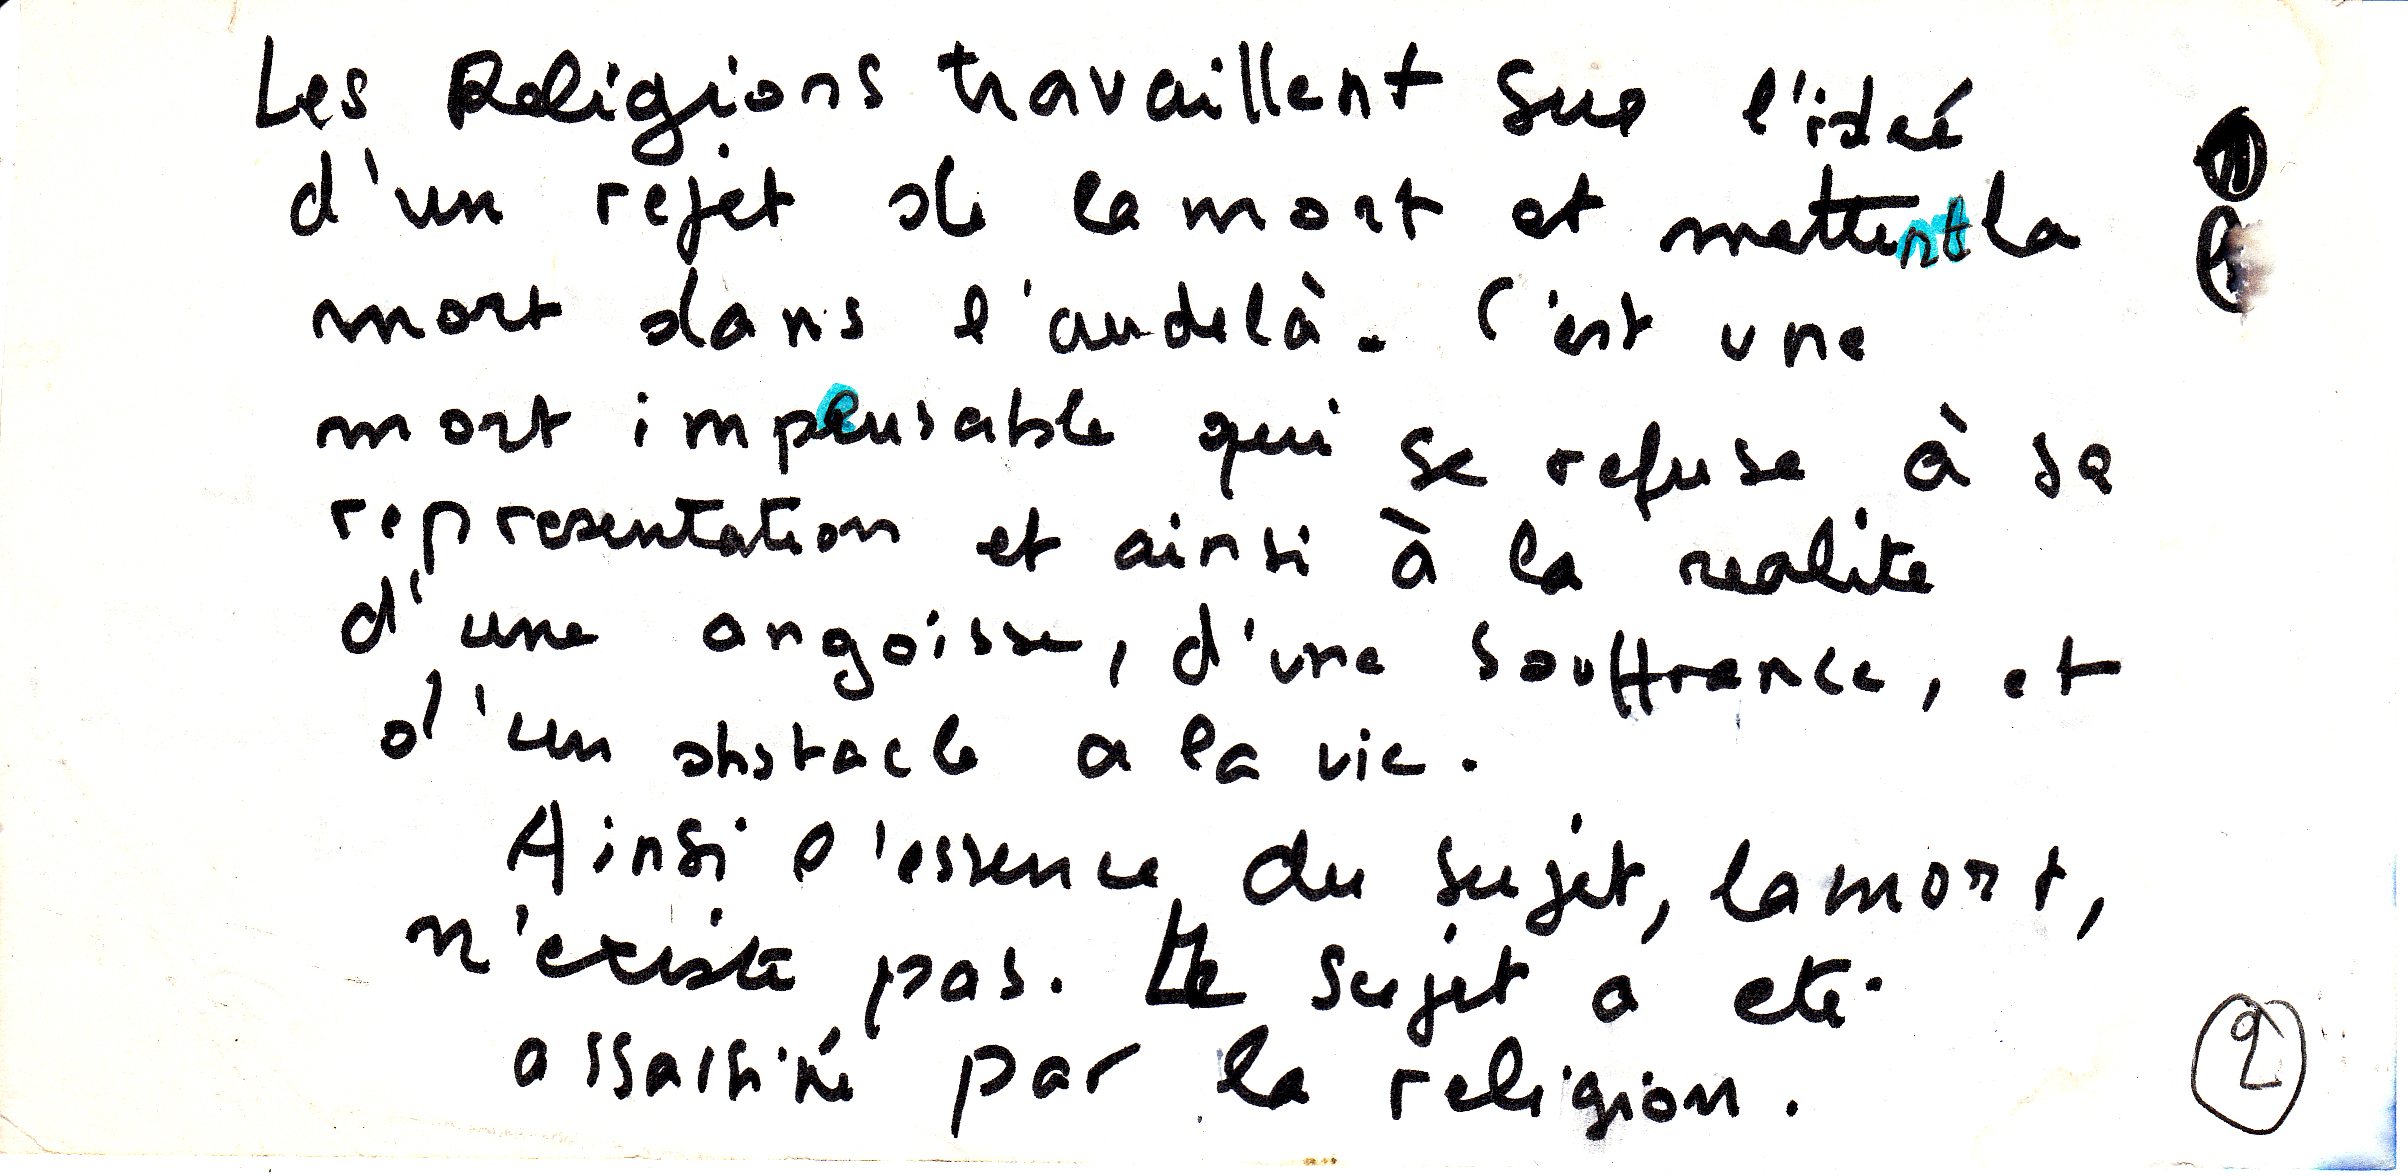 Les Religions travaillent sur l'ideé
d'un rejet de la mort et mettent la
mort dans l'audelà. C'est une
mort impensable qui se refuse à sa
representation et ainsi à la realite
d'une angoisse, d'une souffrance, et
d'un obstacle a la vie.
Ainsi l'essence du sujet, la mort,
n'existe pas. Le sujet a eté
assassiné par la religion.
2